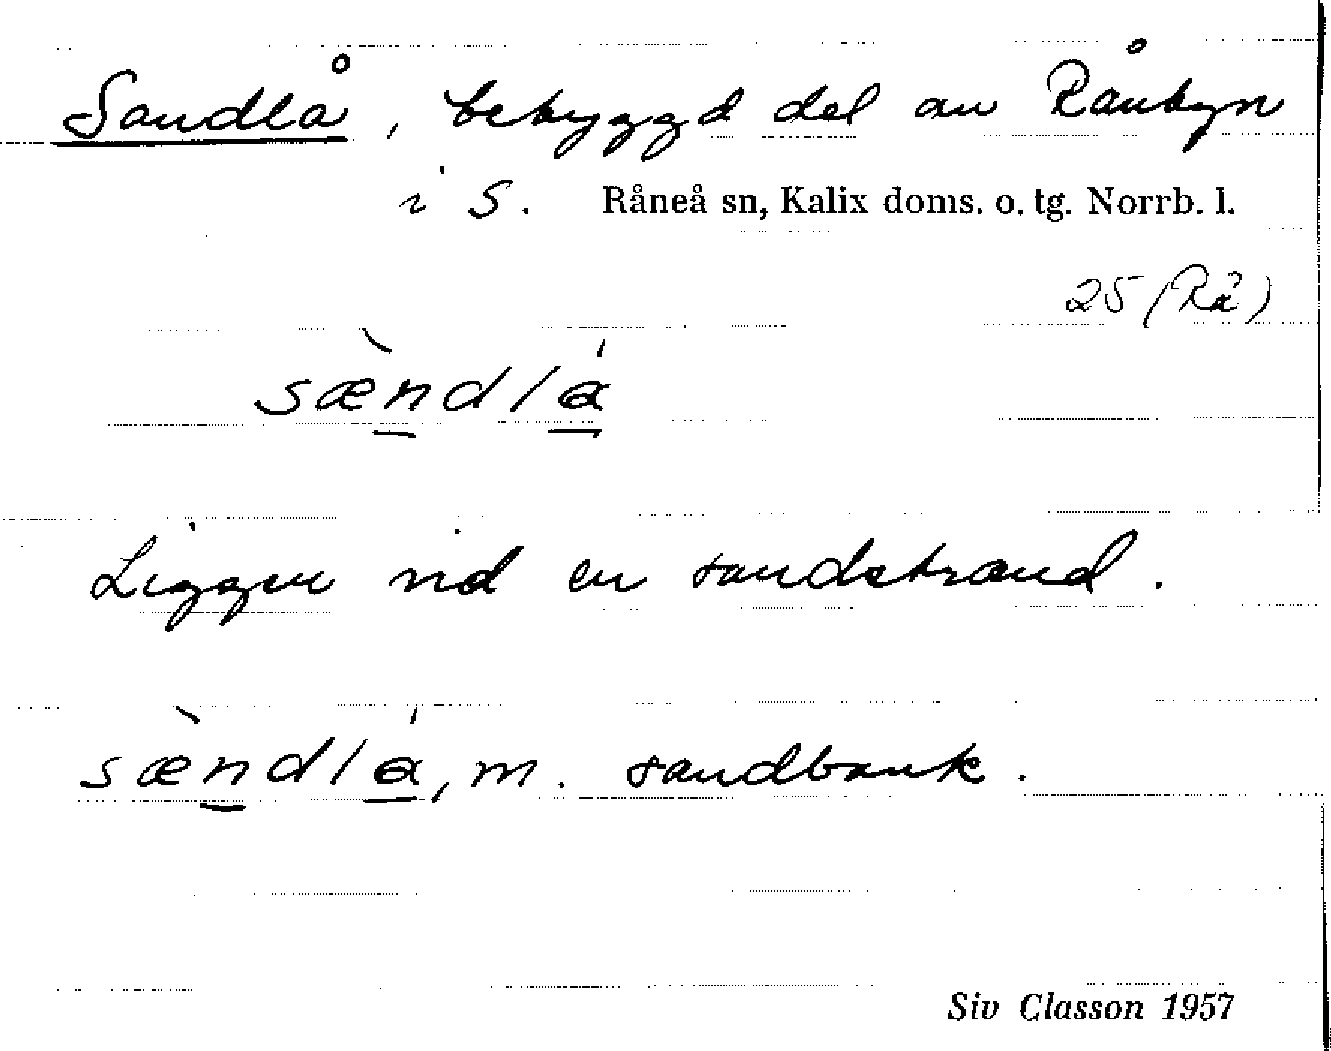 Sandlå, bebyggd del av Rånbyn
i S. Råneå sn, Kalix doms. o. tg. Norrb. l.
25 (Rå)
sæ̀ndlá
Ligger vid en sandstrand.
sæ̀ndlá, m. sandbank.
Siv Classon 1957